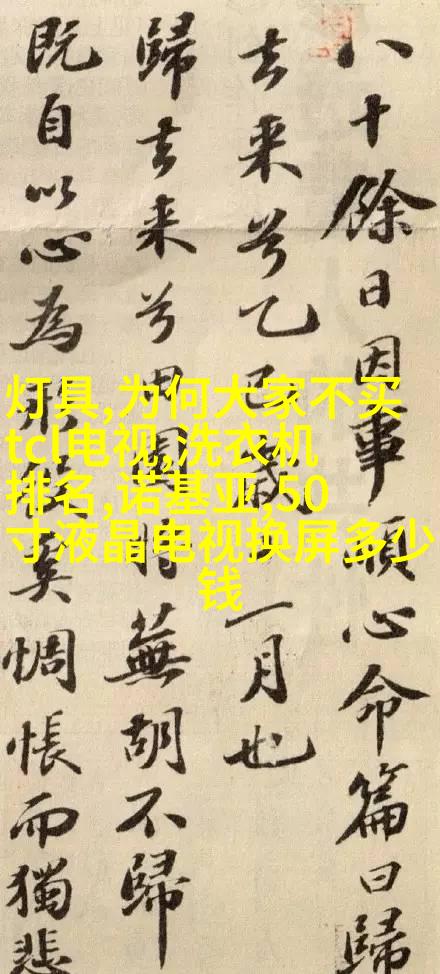 八十餘日因事順心命篇曰歸
去来兮乙巳歲十一月也
歸去来兮田園将蕪胡不歸
既自以心為形役奚惆悵而獨悲
灯具,为何大家不买
tcl电视,洗衣机
排名,诺基亚,50
寸液晶电视换屏多少
钱